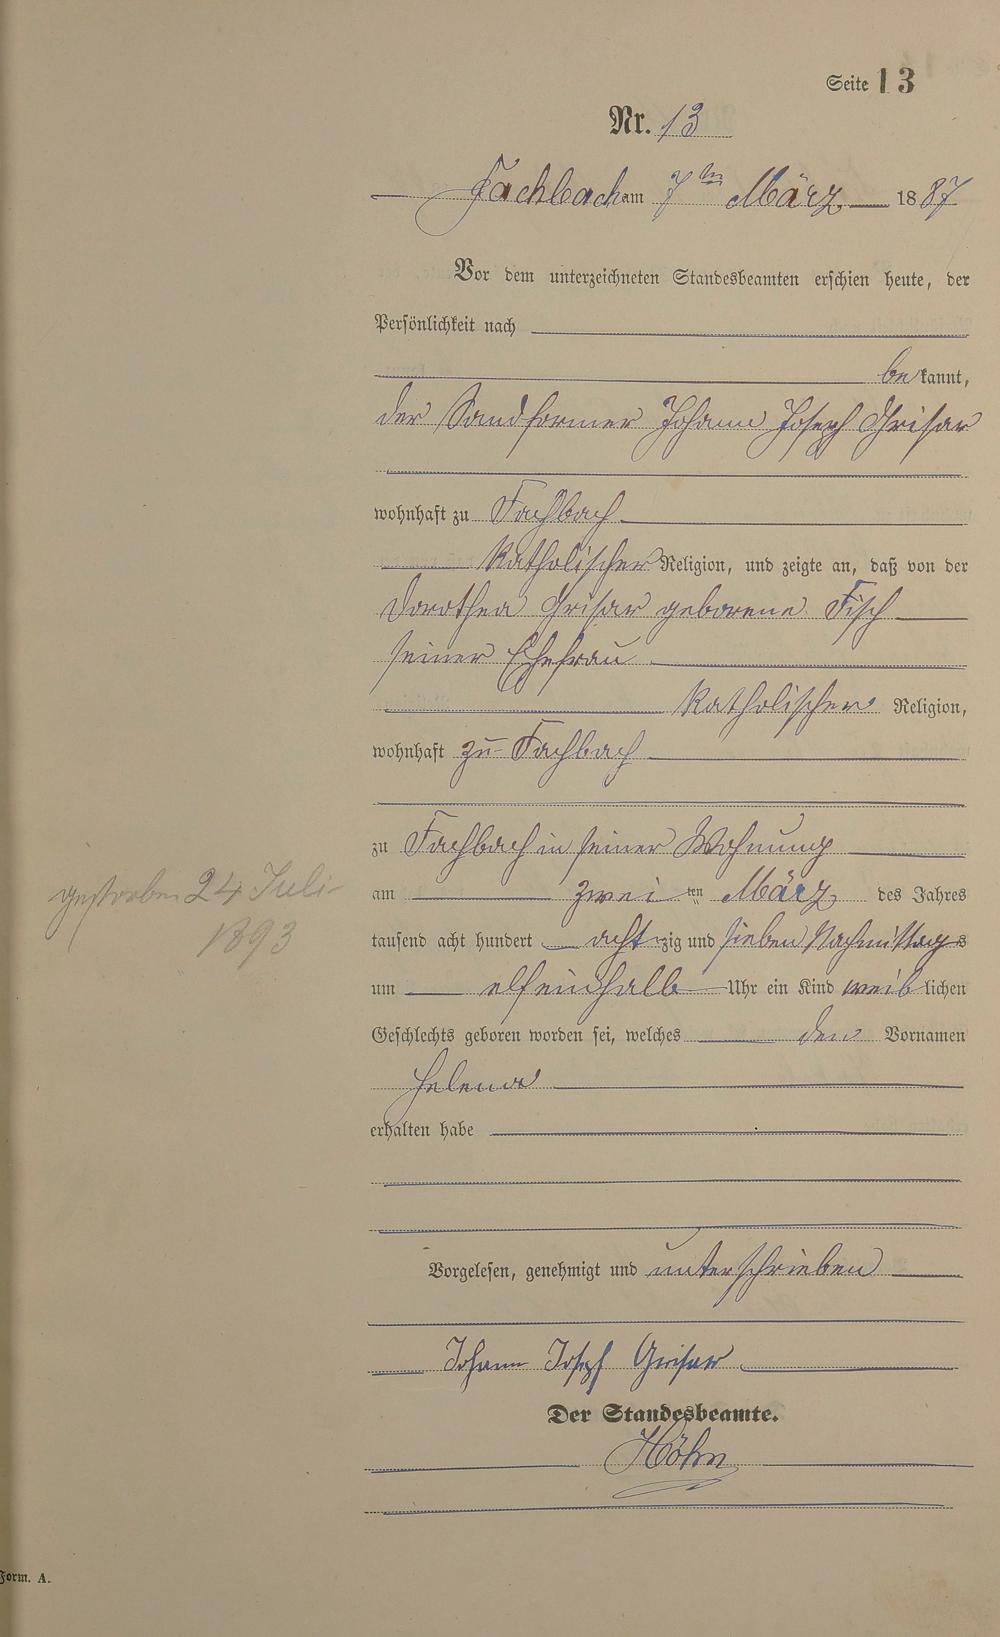 Seite 13
Nr. 13
Fachbach am 7ten März 1887
Vor dem unterzeichneten Standesbeamten erschien heute, der
Persönlichkeit nach
bekannt,
der Sandformer Johann Joseph Grisar
wohnhaft zu Fachbach
katholischer Religion, und zeigte an, daß von der
Dorothea Grisar geborene Fisch
seiner Ehefrau
katholischer Religion,
wohnhaft zu Fachbach
zu Fachbach in seiner Wohnung
am zwei ten März des Jahres
tausend acht hundert achtzig und sieben Nachmittags
um elfeinhalb Uhr ein Kind weiblichen
Geschlechts geboren worden sei, welches den Vornamen
Helena
erhalten habe
gestorben 24 Juli
1893
Vorgelesen, genehmigt und unterschrieben
Johann Josepf Grisar
Der Standesbeamte.
Höhn
Form. A.